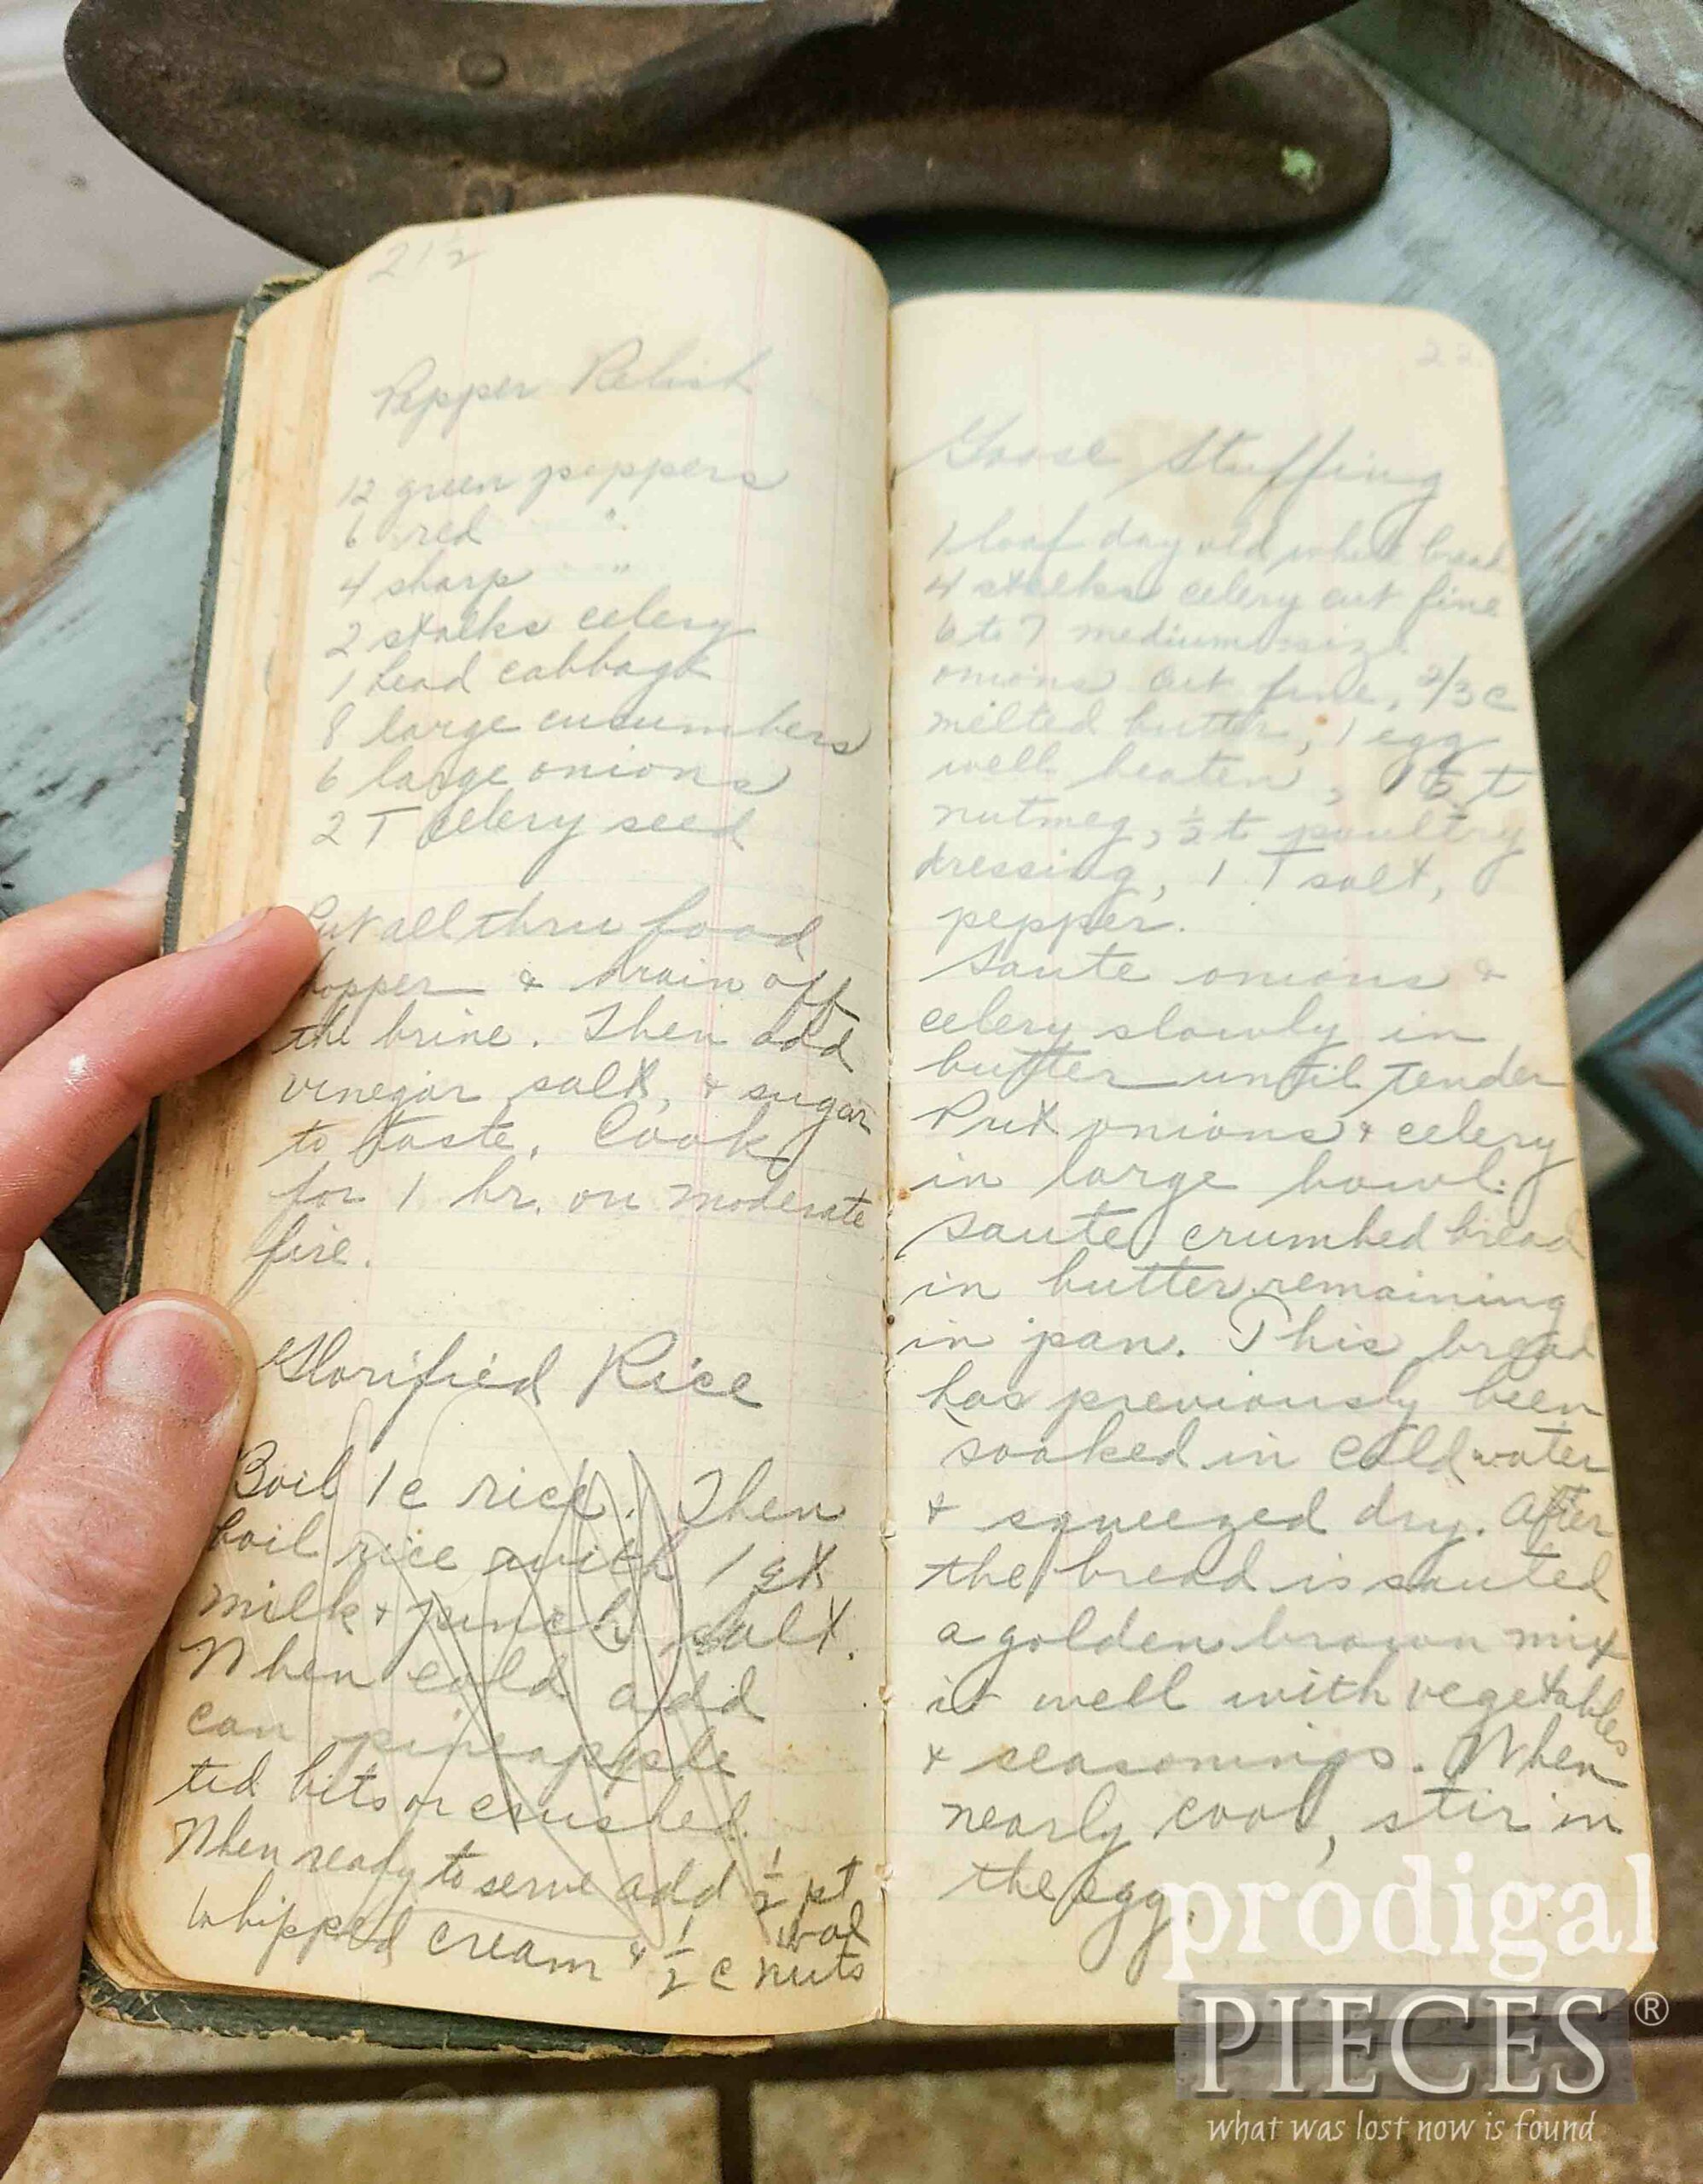 21½
Pepper Relish
12 green peppers
6 red "
4 sharp "
2 stalks celery
1 head cabbage
8 large cucumbers
6 large onions
2 T celery seed
Put all thru food
hopper & drain off
the brine. Then add
vinegar salt, & sugar
to taste. Cook
for 1 hr. on moderate
fire.
Glorified Rice
Boil 1 c rice. Then
boil rice with 1 qt
milk & pinch salt.
When cold add
can pineapple
tid bits or crushed.
When ready to serve add ½ pt
whipped cream & ½ c wal
nuts
22
Goose Stuffing
1 loaf day old white bread
4 stalks celery cut fine
6 to 7 medium size
onions cut fine, 2/3 c
melted butter, 1 egg
well beaten, t
nutmeg, ½ t poultry
dressing, 1 T salt,
pepper.
Saute onions &
celery slowly in
butter until tender
Put onions & celery
in large bowl.
Saute crumbed bread
in butter remaining
in pan. This bread
has previously been
soaked in cold water
& squeezed dry. After
the bread is sauted
a golden brown mix
it well with vegetables
& seasonings. When
nearly cool, stir in
the egg.
prodigal
PIECES®
what was lost now is found